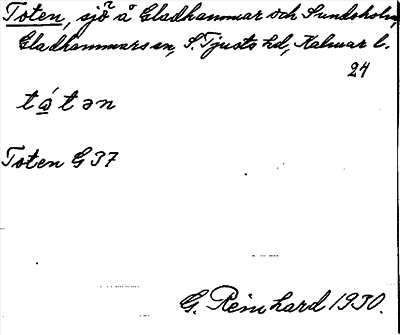 Toten, sjö å Gladhammar och Sundsholm,
Gladhammars sn, S. Tjusts hd, Kalmar l.
24
tátən
Toten G 37
G. Reinhard 1930.